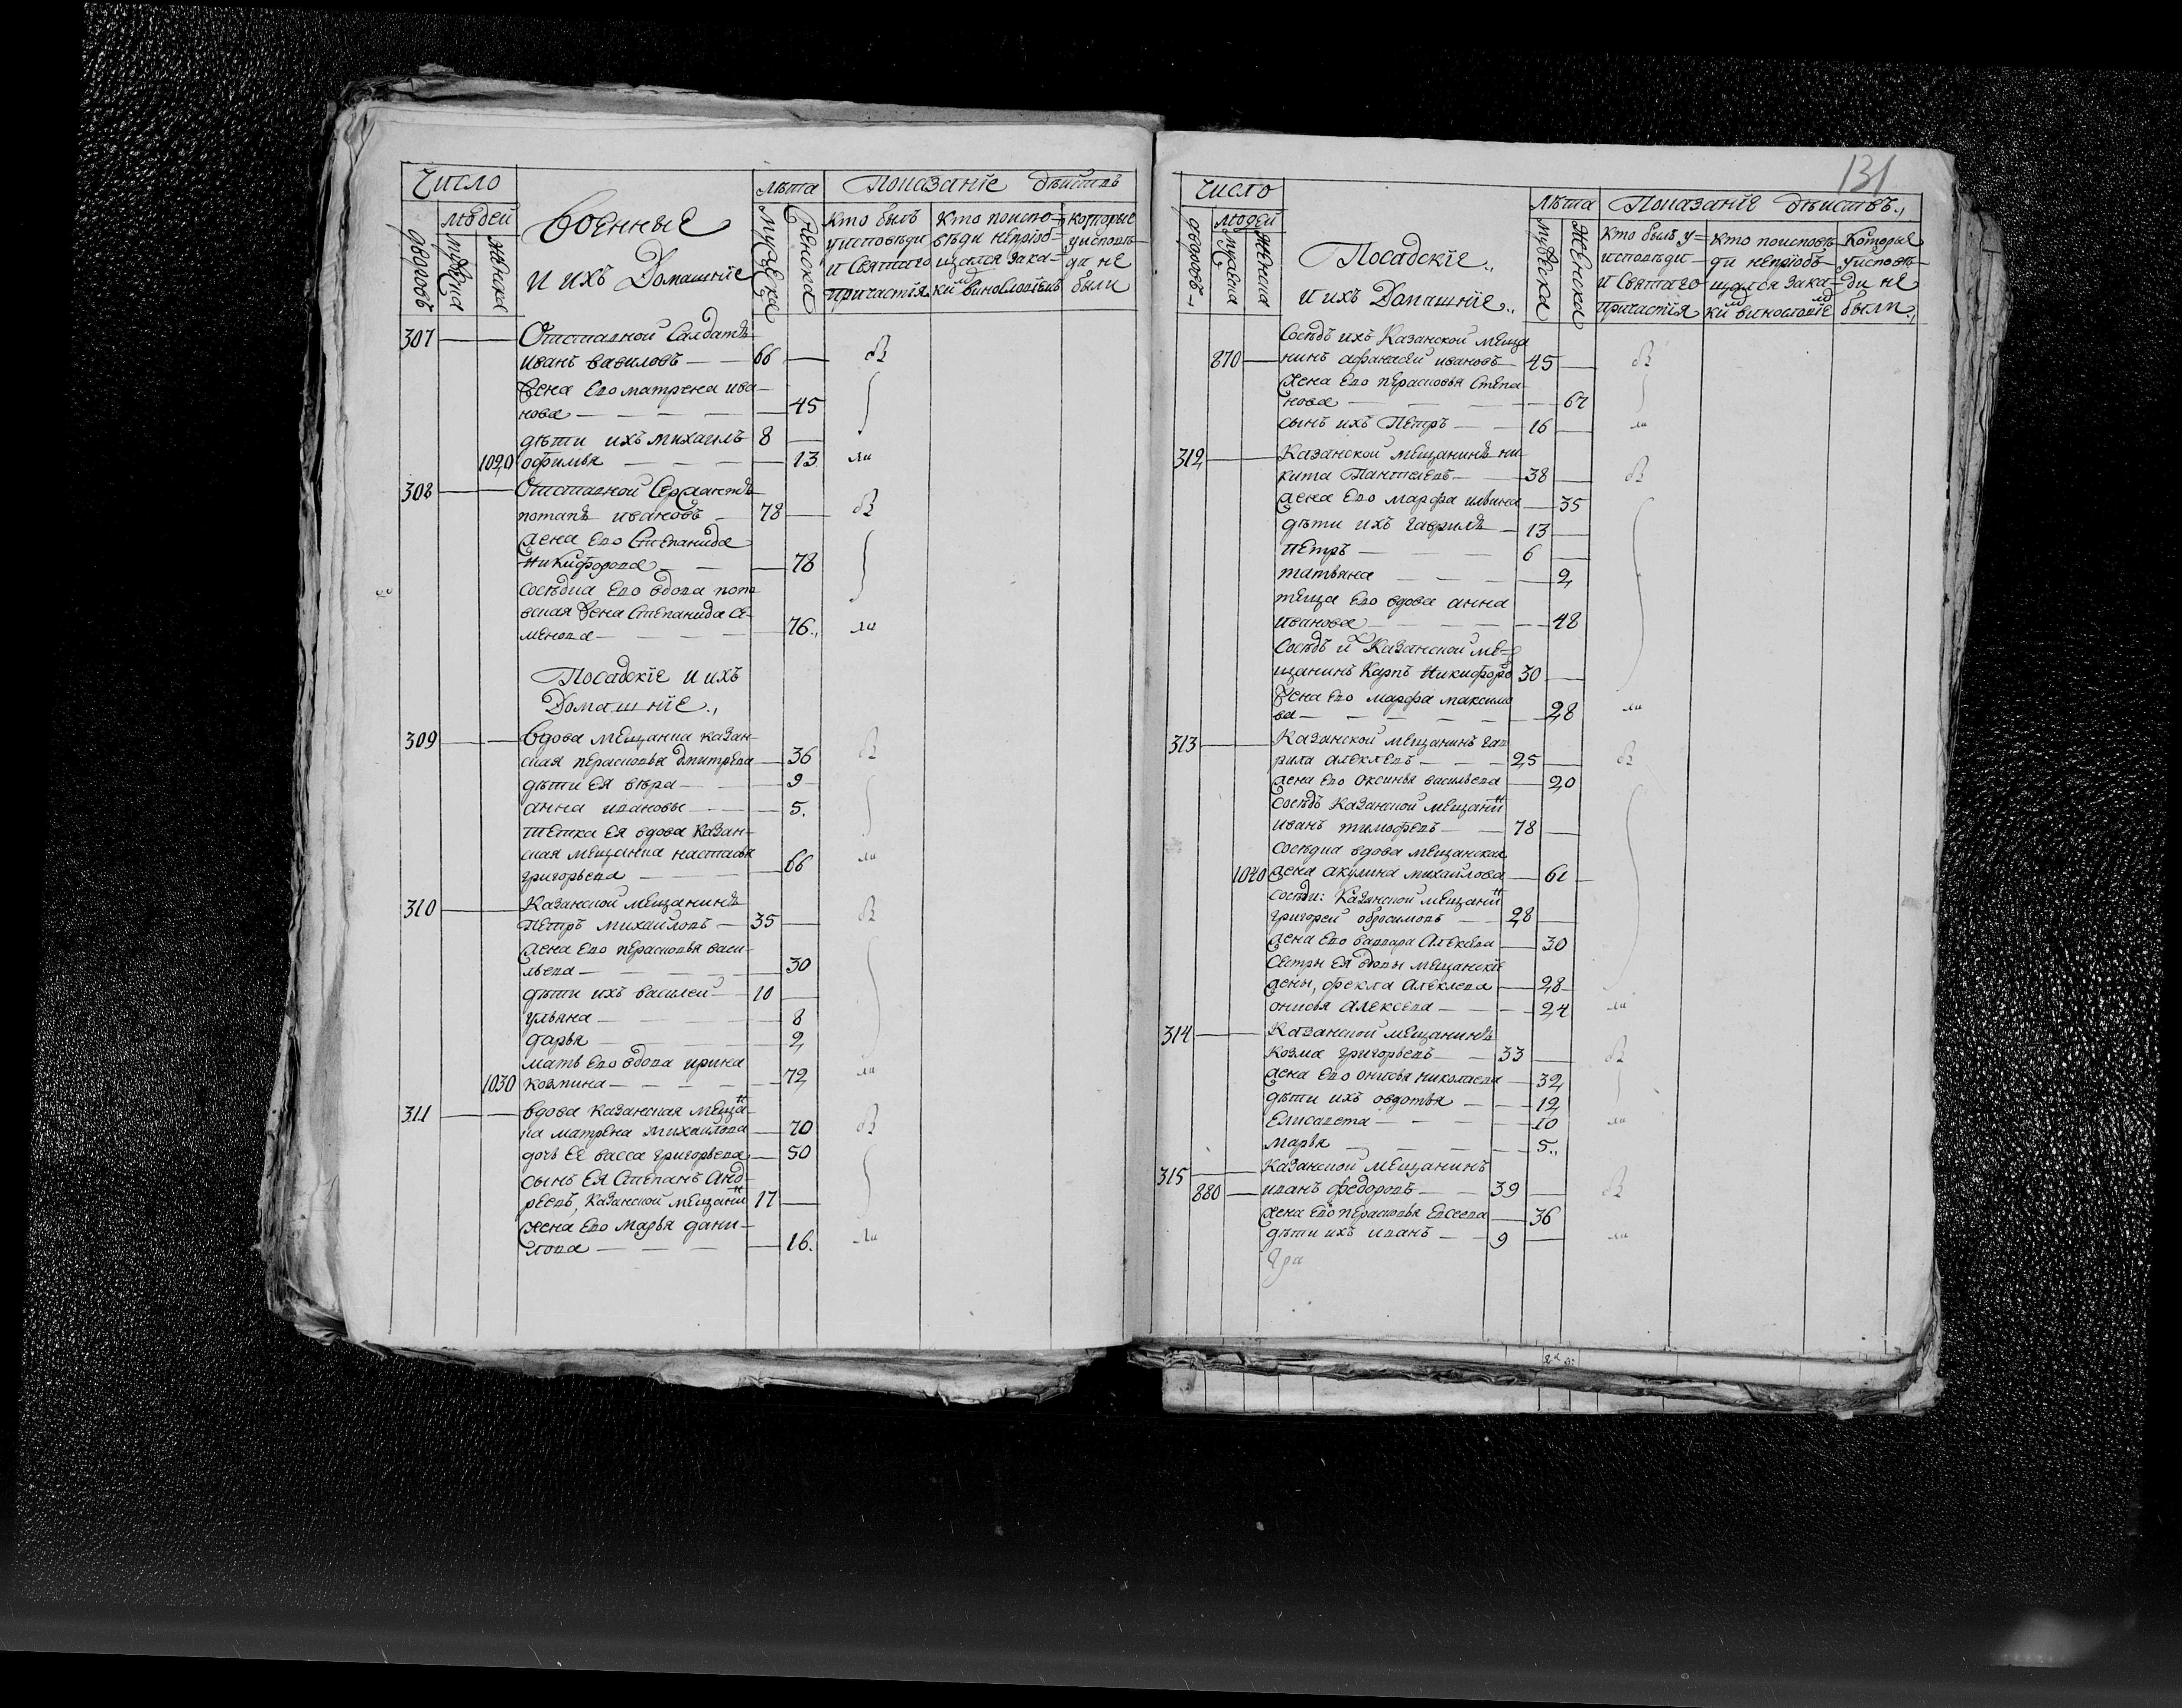 Число
Военные
и ихъ Домашніе
Лѣта
Показаніе дѣйствъ
дворовъ
людей
мужеска
женска
мужеска
женска
Кто былъ
уисповѣди
и Святаго
причастія
Кто поиспо-
вѣди непріоб-
щался зака-
ки виносло
которые
уисповѣ-
ди не
были
307 Отставной Салдатъ
иванъ вавиловъ 66
жена Его матрена ива-
нова 45
дѣти ихъ михаилъ 8
1020 офимья 13
308 Отставной Сержантъ
потапъ ивановъ 78
жена Его Степанида
Никифорова 78
сосѣдка Его вдова
жена Степанида Се-
менова 76
Посадскіе и ихъ
Домашніе
309 вдова мещанка казан-
ская перасковья дмитрева 36
дѣти Ея вѣра 9
анна ивановы 5
тетка Ея вдова Казан-
ская мещанка настасья
григорьева 66
310 Казанской мещанинъ
Петръ михаиловъ 35
жена Его перасковья васи-
льева 30
дѣти ихъ василей 10
ульяна 8
дарья 2
мать Его вдова ирина
1030 козмина 72
311 вдова казанская меща-
ка матрена михаилова 70
дочь Ее васса григорьева 50
сынъ Ея Степанъ Анд-
реевъ, Казанской мещани 17
жена Его марья дани-
лова 16
131
число
Посадскіе
и ихъ Домашніе
Лѣта
Показаніе дѣйствъ
дворовъ
людей
мужеска
женска
мужеска
женска
Кто былъ у-
исповѣди
и Святаго
причастія
Кто поисповѣ-
ди непріобъ-
щался зака-
ки виносло
Которые
уисповѣ-
ди не
были
Сосѣдъ ихъ Казанской меща
870 нинъ афанасей ивановъ 45
жена Его перасковья Степа-
нова 67
сынъ ихъ Петръ 16
312 Казанской мещанинъ ни-
кита Пантелевъ 38
жена Его марфа ильина 35
дѣти ихъ гаврилъ 13
петръ 6
татьяна 2
теща Его вдова анна
иванова 48
Сосѣдъ и Казанской ме-
щанинъ Карпъ Никифоро 30
жена Его марфа максимо
ва 28
313 Казанской мещанинъ гав
рила алексеевъ 25
жена Его оксинья васильева 20
Сосѣдъ Казанской мещани
иванъ тимофевъ 78
сосѣдка вдова мещанская
1040 жена акулина михаилова 61
сосѣди: Казанской мещани
григорей обросимовъ 28
жена Его варвара Алексева 30
Сестры Ея вдовы мещанскіе
жены, фекла Алексева 28
онисья Алексева 24
314 Казанской мещанинъ
козма григорьевъ 33
жена Его онисья николаева 32
дѣти ихъ овдотья 12
Елисавета 10
марья 5
315 Казанской мещанинъ
880 иванъ федоровъ 39
жена Его перасковья Евсеева 36
дѣти ихъ иванъ 9